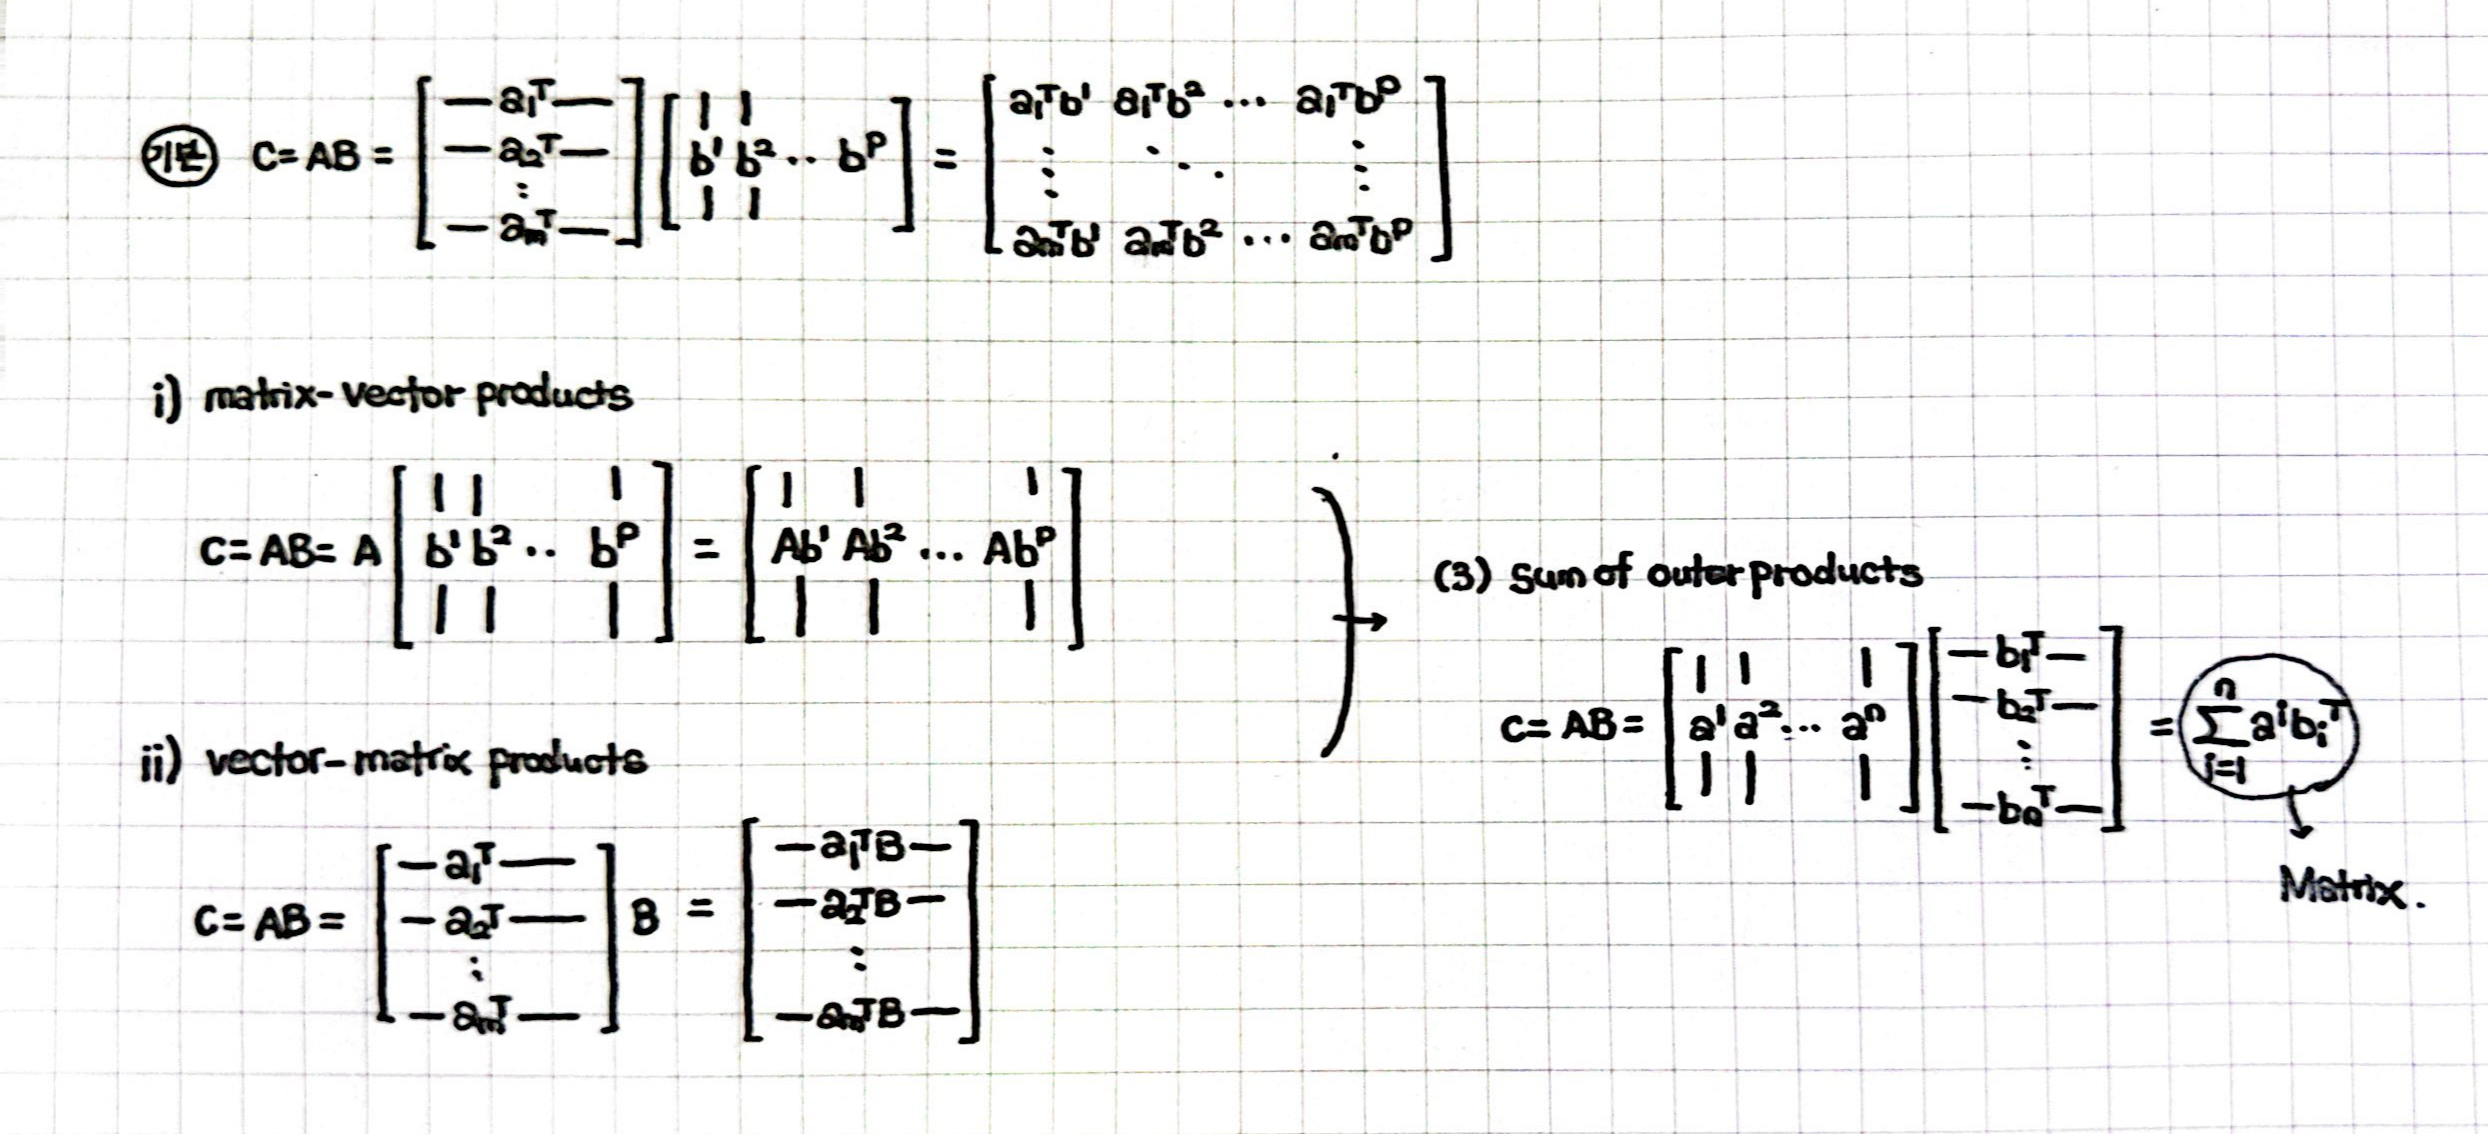 기본 C = AB = [ —a₁ᵀ— —a₂ᵀ— ⋮ —aₘᵀ— ] [ b¹ b² ‥ bᵖ ] = [ a₁ᵀb¹ a₁ᵀb² ⋯ a₁ᵀbᵖ ⋮ ⋱ ⋮ aₘᵀb¹ aₘᵀb² ⋯ aₘᵀbᵖ ]
i) matrix-vector products
C = AB = A [ b¹ b² ‥ bᵖ ] = [ Ab¹ Ab² … Abᵖ ]
ii) vector-matrix products
C = AB = [ —a₁ᵀ— —a₂ᵀ— ⋮ —aₘᵀ— ] B = [ —a₁ᵀB— —a₂ᵀB— ⋮ —aₘᵀB— ]
(3) sum of outer products
C = AB = [ a¹ a² … aⁿ ] [ —b₁ᵀ— —b₂ᵀ— ⋮ —bₙᵀ— ] = ∑ⁿᵢ₌₁ aⁱbᵢᵀ
Matrix.